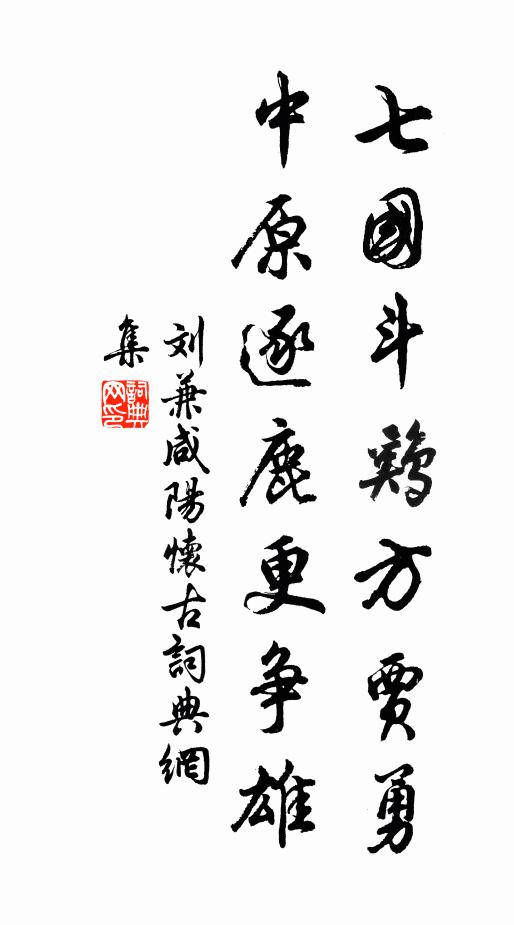 七國斗鷄方賈勇
中原逐鹿更争雄
刘兼咸陽懷古詞典網
集
詞典網印